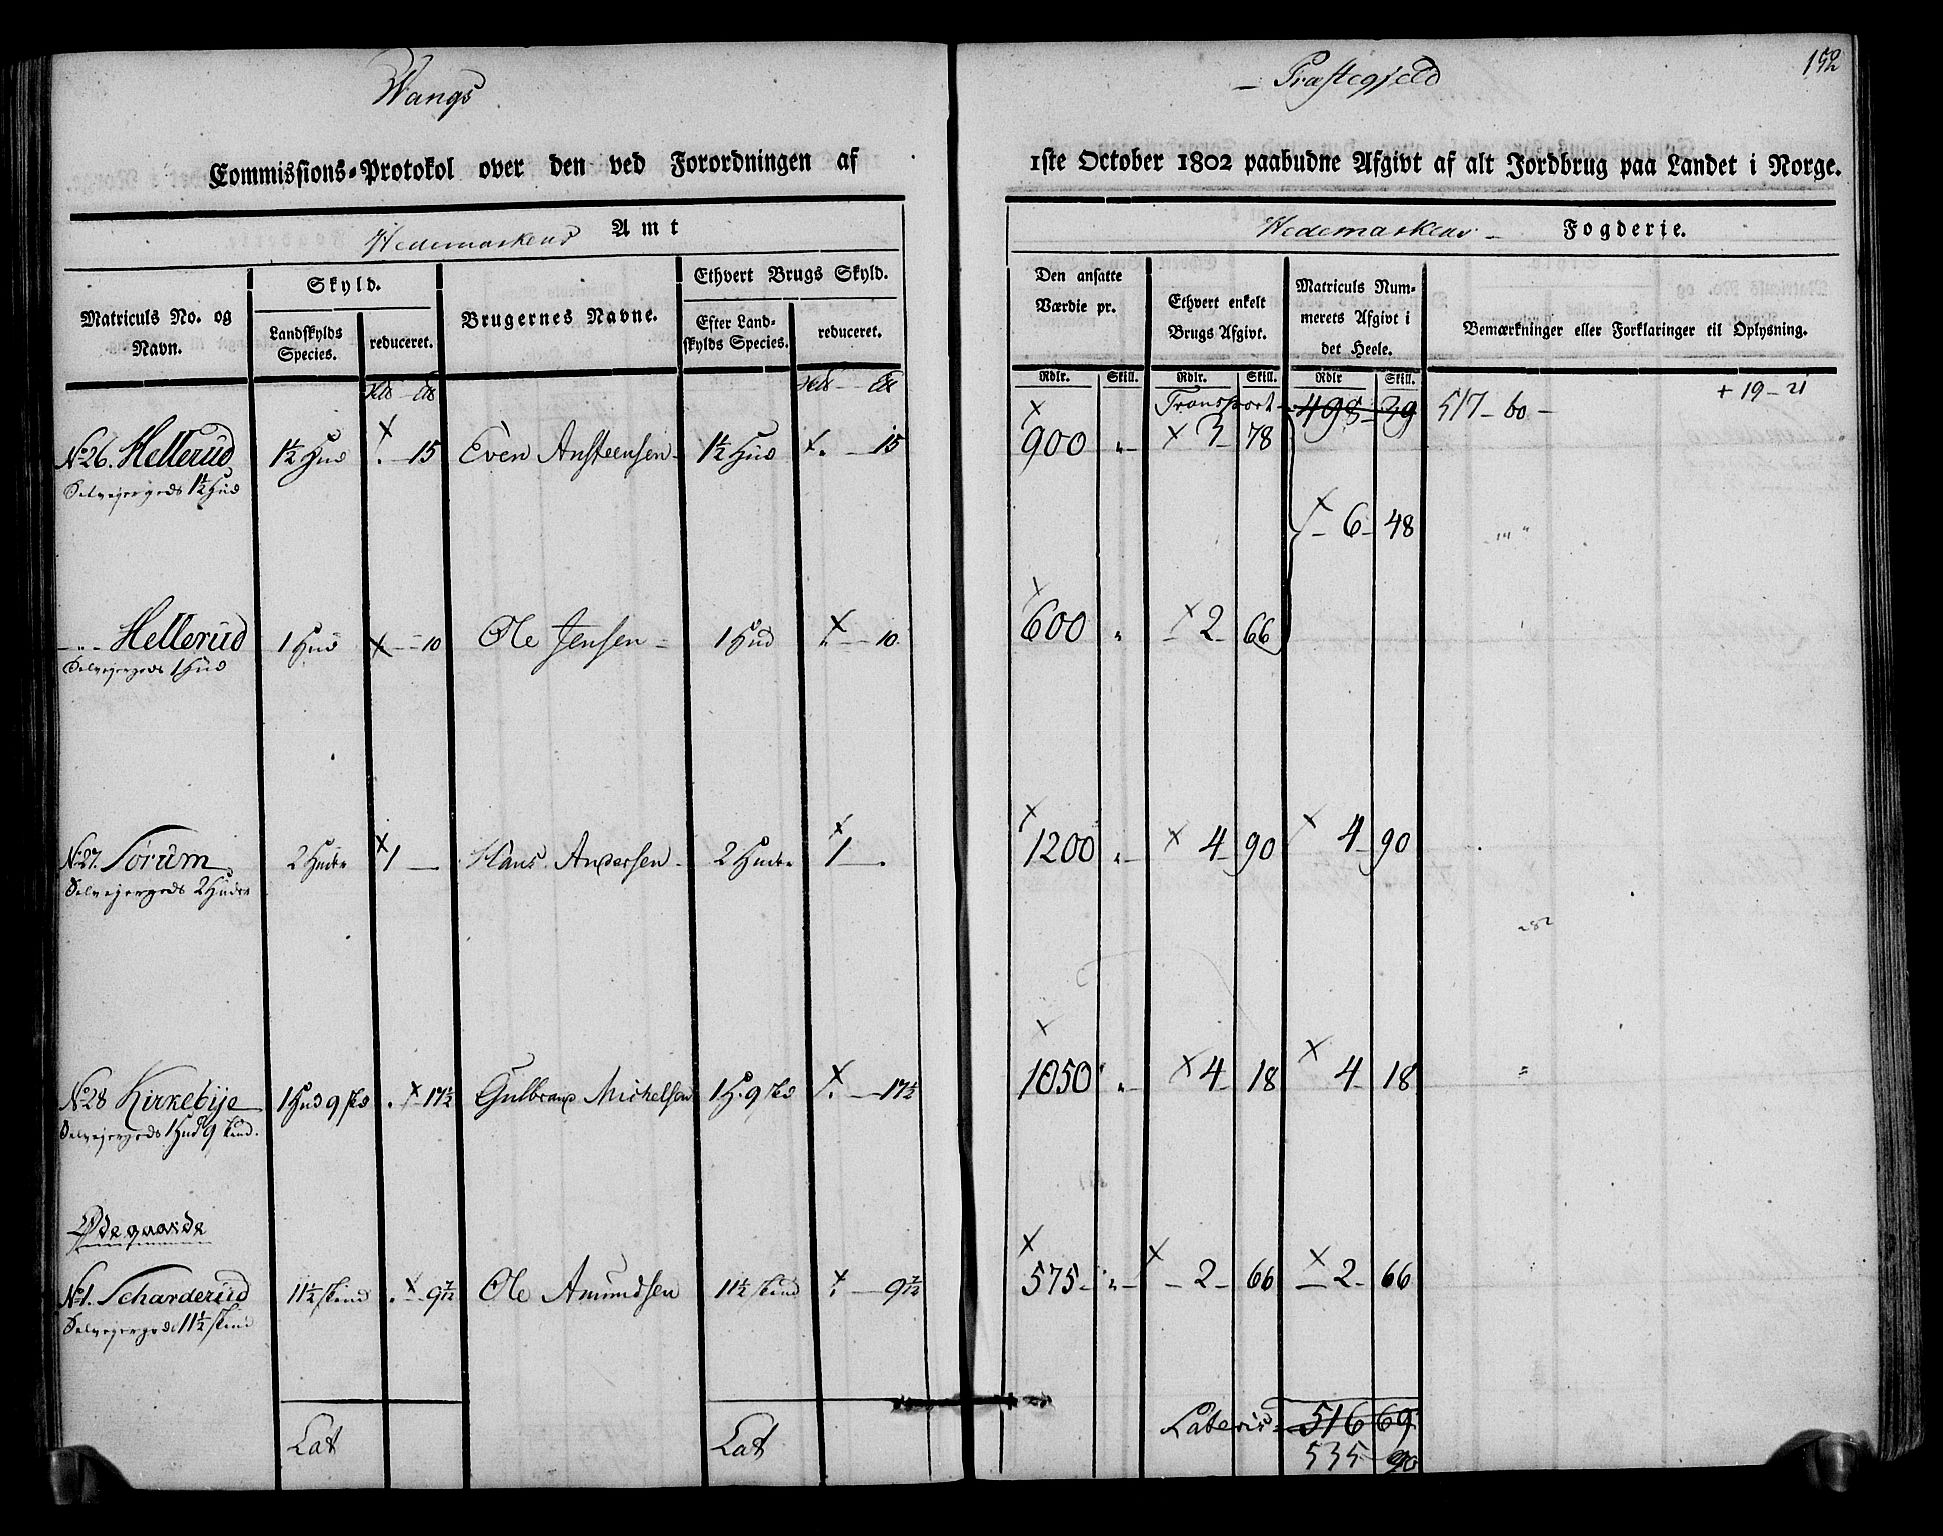 Wangs
– Præstegjeld
152
Commissions-Protokol over den ved Forordningen af
1ste October 1802 paabudne Afgivt af alt Jordbrug paa Landet i Norge.
Hedemarkens Amt
Hedemarkens – Fogderie.
Matriculs No. og Navn.
Skyld.
Landskylds Species.
reduceret.
Brugernes Navne.
Ethvert Brugs Skyld.
Efter Landskylds Species.
reduceret.
Den ansatte Værdie pr.
Ethvert enkelt Brugs Afgivt.
Matriculs Nummerets Afgivt i det Heele.
Bemærkninger eller Forklaringer til Oplysning.
Rdlr. Skill. Rdlr. Skill. Rdlr Skill.
Transport 495 39 517 – 60 – + 19 – 21
No 26. Hellerud 1½ Hud × . – 15 Even Ansteensen – 1½ Hud × . – 15 × 900 „ – × 3 – 78
Selvejergods 1½ Hud
× – 6 – 48
– „ – Hellerud 1 Hud × – 10 Ole Jensen – 1 Hud × . – 10. × 600 „ × – 2 – 66
Selvejergods 1 Hud
No 27. Sørum 2 Huder × 1 – Hans Andersen – 2 Huder × 1 – . × 1200 „ – × 4 – 90 × 4 – 90
Selvejergods 2 Huder
No 28 Kirkebije 1 Hud 9 skd . × – 17½ Gulbrand Michelsen 1 H. 9 skd × . – 17½ × 1050 „ – × 4 – 18 × 4 – 18
Selvejergods 1 Hud 9 skind.
Ødegaarde
No 1. Scharderud 11½ skind . × – 9 7/12 Ole Amundsen 11½ skind × . – 9 7/12 × 575 – „ – × – 2 – 66 × – 2 – 66
Selvejergods 11½ skind
Lat
Lat
Lateris – 516 69
535 – 90